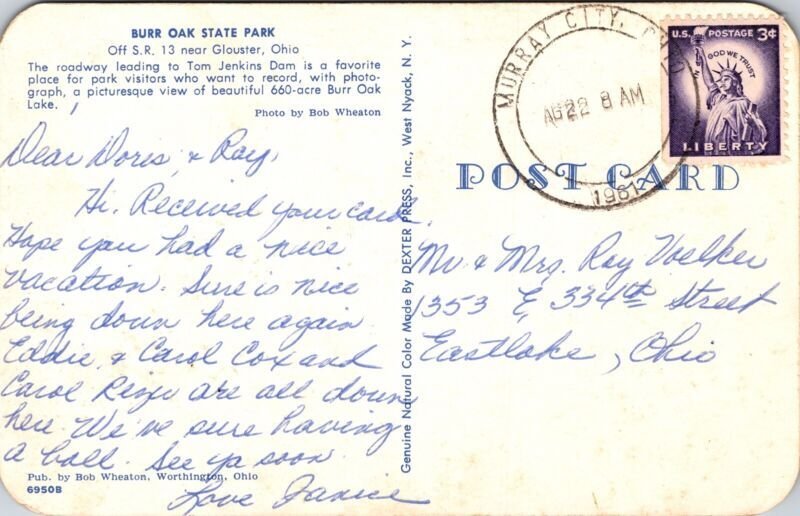 BURR OAK STATE PARK
Off S.R. 13 near Glouster, Ohio
The roadway leading to Tom Jenkins Dam is a favorite
place for park visitors who want to record, with photo-
graph, a picturesque view of beautiful 660-acre Burr Oak
Lake.
Photo by Bob Wheaton
Dear Doris & Ray,
Hi. Received your card.
Hope you had a nice
vacation. Sure is nice
being down here again
Eddie & Carol Cox and
Carol are all down
here. We've sure having
a ball. See ya soon.
Love Janice
Pub. by Bob Wheaton, Worthington, Ohio
6950B
Genuine Natural Color Made By DEXTER PRESS, Inc., West Nyack, N. Y.
MURRAY CITY,
AG22 8 AM
1961
U.S. POSTAGE 3¢
IN GOD WE TRUST
LIBERTY
POST CARD
Mr & Mrs. Ray Voelker
1353 E 334th Street
Eastlake, Ohio